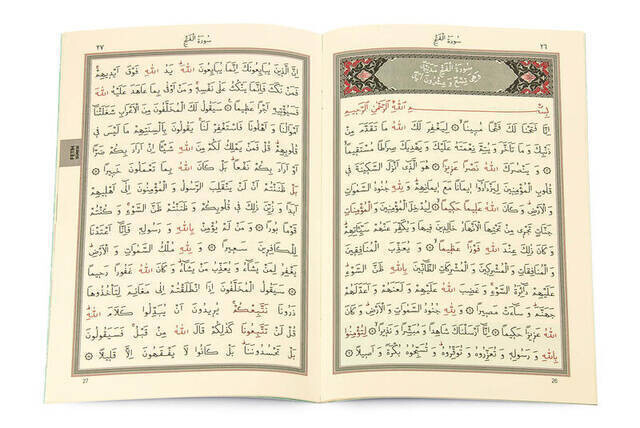 سُورَةُ الْفَتْحِ ٢٦
سُورَةُ الْفَتْحِ مَدَنِيَّةٌ
وَهِيَ تِسْعٌ وَعِشْرُونَ اٰيَةً
بِسْمِ اللّٰهِ الرَّحْمٰنِ الرَّحِيمِ
اِنَّا فَتَحْنَا لَكَ فَتْحًا مُبِينًا ۝ لِيَغْفِرَ لَكَ اللّٰهُ مَا تَقَدَّمَ مِنْ
ذَنْبِكَ وَمَا تَاَخَّرَ وَيُتِمَّ نِعْمَتَهُ عَلَيْكَ وَيَهْدِيَكَ صِرَاطًا مُسْتَقِيمًا
۝ وَيَنْصُرَكَ اللّٰهُ نَصْرًا عَزِيزًا ۝ هُوَ الَّذِي اَنْزَلَ السَّكِينَةَ فِي
قُلُوبِ الْمُؤْمِنِينَ لِيَزْدَادُوا اِيمَانًا مَعَ اِيمَانِهِمْ وَلِلّٰهِ جُنُودُ السَّمٰوَاتِ
وَالْاَرْضِ وَكَانَ اللّٰهُ عَلِيمًا حَكِيمًا ۝ لِيُدْخِلَ الْمُؤْمِنِينَ وَالْمُؤْمِنَاتِ
جَنَّاتٍ تَجْرِي مِنْ تَحْتِهَا الْاَنْهَارُ خَالِدِينَ فِيهَا وَيُكَفِّرَ عَنْهُمْ سَيِّـَٔاتِهِمْ
وَكَانَ ذٰلِكَ عِنْدَ اللّٰهِ فَوْزًا عَظِيمًا ۝ وَيُعَذِّبَ الْمُنَافِقِينَ
وَالْمُنَافِقَاتِ وَالْمُشْرِكِينَ وَالْمُشْرِكَاتِ الظَّانِّينَ بِاللّٰهِ ظَنَّ السَّوْءِ
عَلَيْهِمْ دَائِرَةُ السَّوْءِ وَغَضِبَ اللّٰهُ عَلَيْهِمْ وَلَعَنَهُمْ وَاَعَدَّ لَهُمْ
جَهَنَّمَ وَسَاءَتْ مَصِيرًا ۝ وَلِلّٰهِ جُنُودُ السَّمٰوَاتِ وَالْاَرْضِ وَكَانَ
اللّٰهُ عَزِيزًا حَكِيمًا ۝ اِنَّا اَرْسَلْنَاكَ شَاهِدًا وَمُبَشِّرًا وَنَذِيرًا ۝ لِتُؤْمِنُوا
بِاللّٰهِ وَرَسُولِهِ وَتُعَزِّرُوهُ وَتُوَقِّرُوهُ وَتُسَبِّحُوهُ بُكْرَةً وَاَصِيلًا ۝
26
سُورَةُ الْفَتْحِ ٢٧
اِنَّ الَّذِينَ يُبَايِعُونَكَ اِنَّمَا يُبَايِعُونَ اللّٰهَ يَدُ اللّٰهِ فَوْقَ اَيْدِيهِمْ
فَمَنْ نَكَثَ فَاِنَّمَا يَنْكُثُ عَلٰى نَفْسِهِ وَمَنْ اَوْفٰى بِمَا عَاهَدَ عَلَيْهُ اللّٰهَ
فَسَيُؤْتِيهِ اَجْرًا عَظِيمًا ۝ سَيَقُولُ لَكَ الْمُخَلَّفُونَ مِنَ الْاَعْرَابِ شَغَلَتْنَا
اَمْوَالُنَا وَاَهْلُونَا فَاسْتَغْفِرْ لَنَا يَقُولُونَ بِاَلْسِنَتِهِمْ مَا لَيْسَ فِي
قُلُوبِهِمْ قُلْ فَمَنْ يَمْلِكُ لَكُمْ مِنَ اللّٰهِ شَيْـًٔا اِنْ اَرَادَ بِكُمْ ضَرًّا
اَوْ اَرَادَ بِكُمْ نَفْعًا بَلْ كَانَ اللّٰهُ بِمَا تَعْمَلُونَ خَبِيرًا ۝
بَلْ ظَنَنْتُمْ اَنْ لَنْ يَنْقَلِبَ الرَّسُولُ وَالْمُؤْمِنُونَ اِلٰى اَهْلِيهِمْ
اَبَدًا وَزُيِّنَ ذٰلِكَ فِي قُلُوبِكُمْ وَظَنَنْتُمْ ظَنَّ السَّوْءِ وَكُنْتُمْ
قَوْمًا بُورًا ۝ وَمَنْ لَمْ يُؤْمِنْ بِاللّٰهِ وَرَسُولِهِ فَاِنَّا اَعْتَدْنَا
لِلْكَافِرِينَ سَعِيرًا ۝ وَلِلّٰهِ مُلْكُ السَّمٰوَاتِ وَالْاَرْضِ
يَغْفِرُ لِمَنْ يَشَاءُ وَيُعَذِّبُ مَنْ يَشَاءُ وَكَانَ اللّٰهُ غَفُورًا رَحِيمًا
۝ سَيَقُولُ الْمُخَلَّفُونَ اِذَا انْطَلَقْتُمْ اِلٰى مَغَانِمَ لِتَأْخُذُوهَا
ذَرُونَا نَتَّبِعْكُمْ يُرِيدُونَ اَنْ يُبَدِّلُوا كَلَامَ اللّٰهِ
قُلْ لَنْ تَتَّبِعُونَا كَذٰلِكُمْ قَالَ اللّٰهُ مِنْ قَبْلُ فَسَيَقُولُونَ
بَلْ تَحْسُدُونَنَا بَلْ كَانُوا لَا يَفْقَهُونَ اِلَّا قَلِيلًا ۝
27
FETH
SÛRESİ